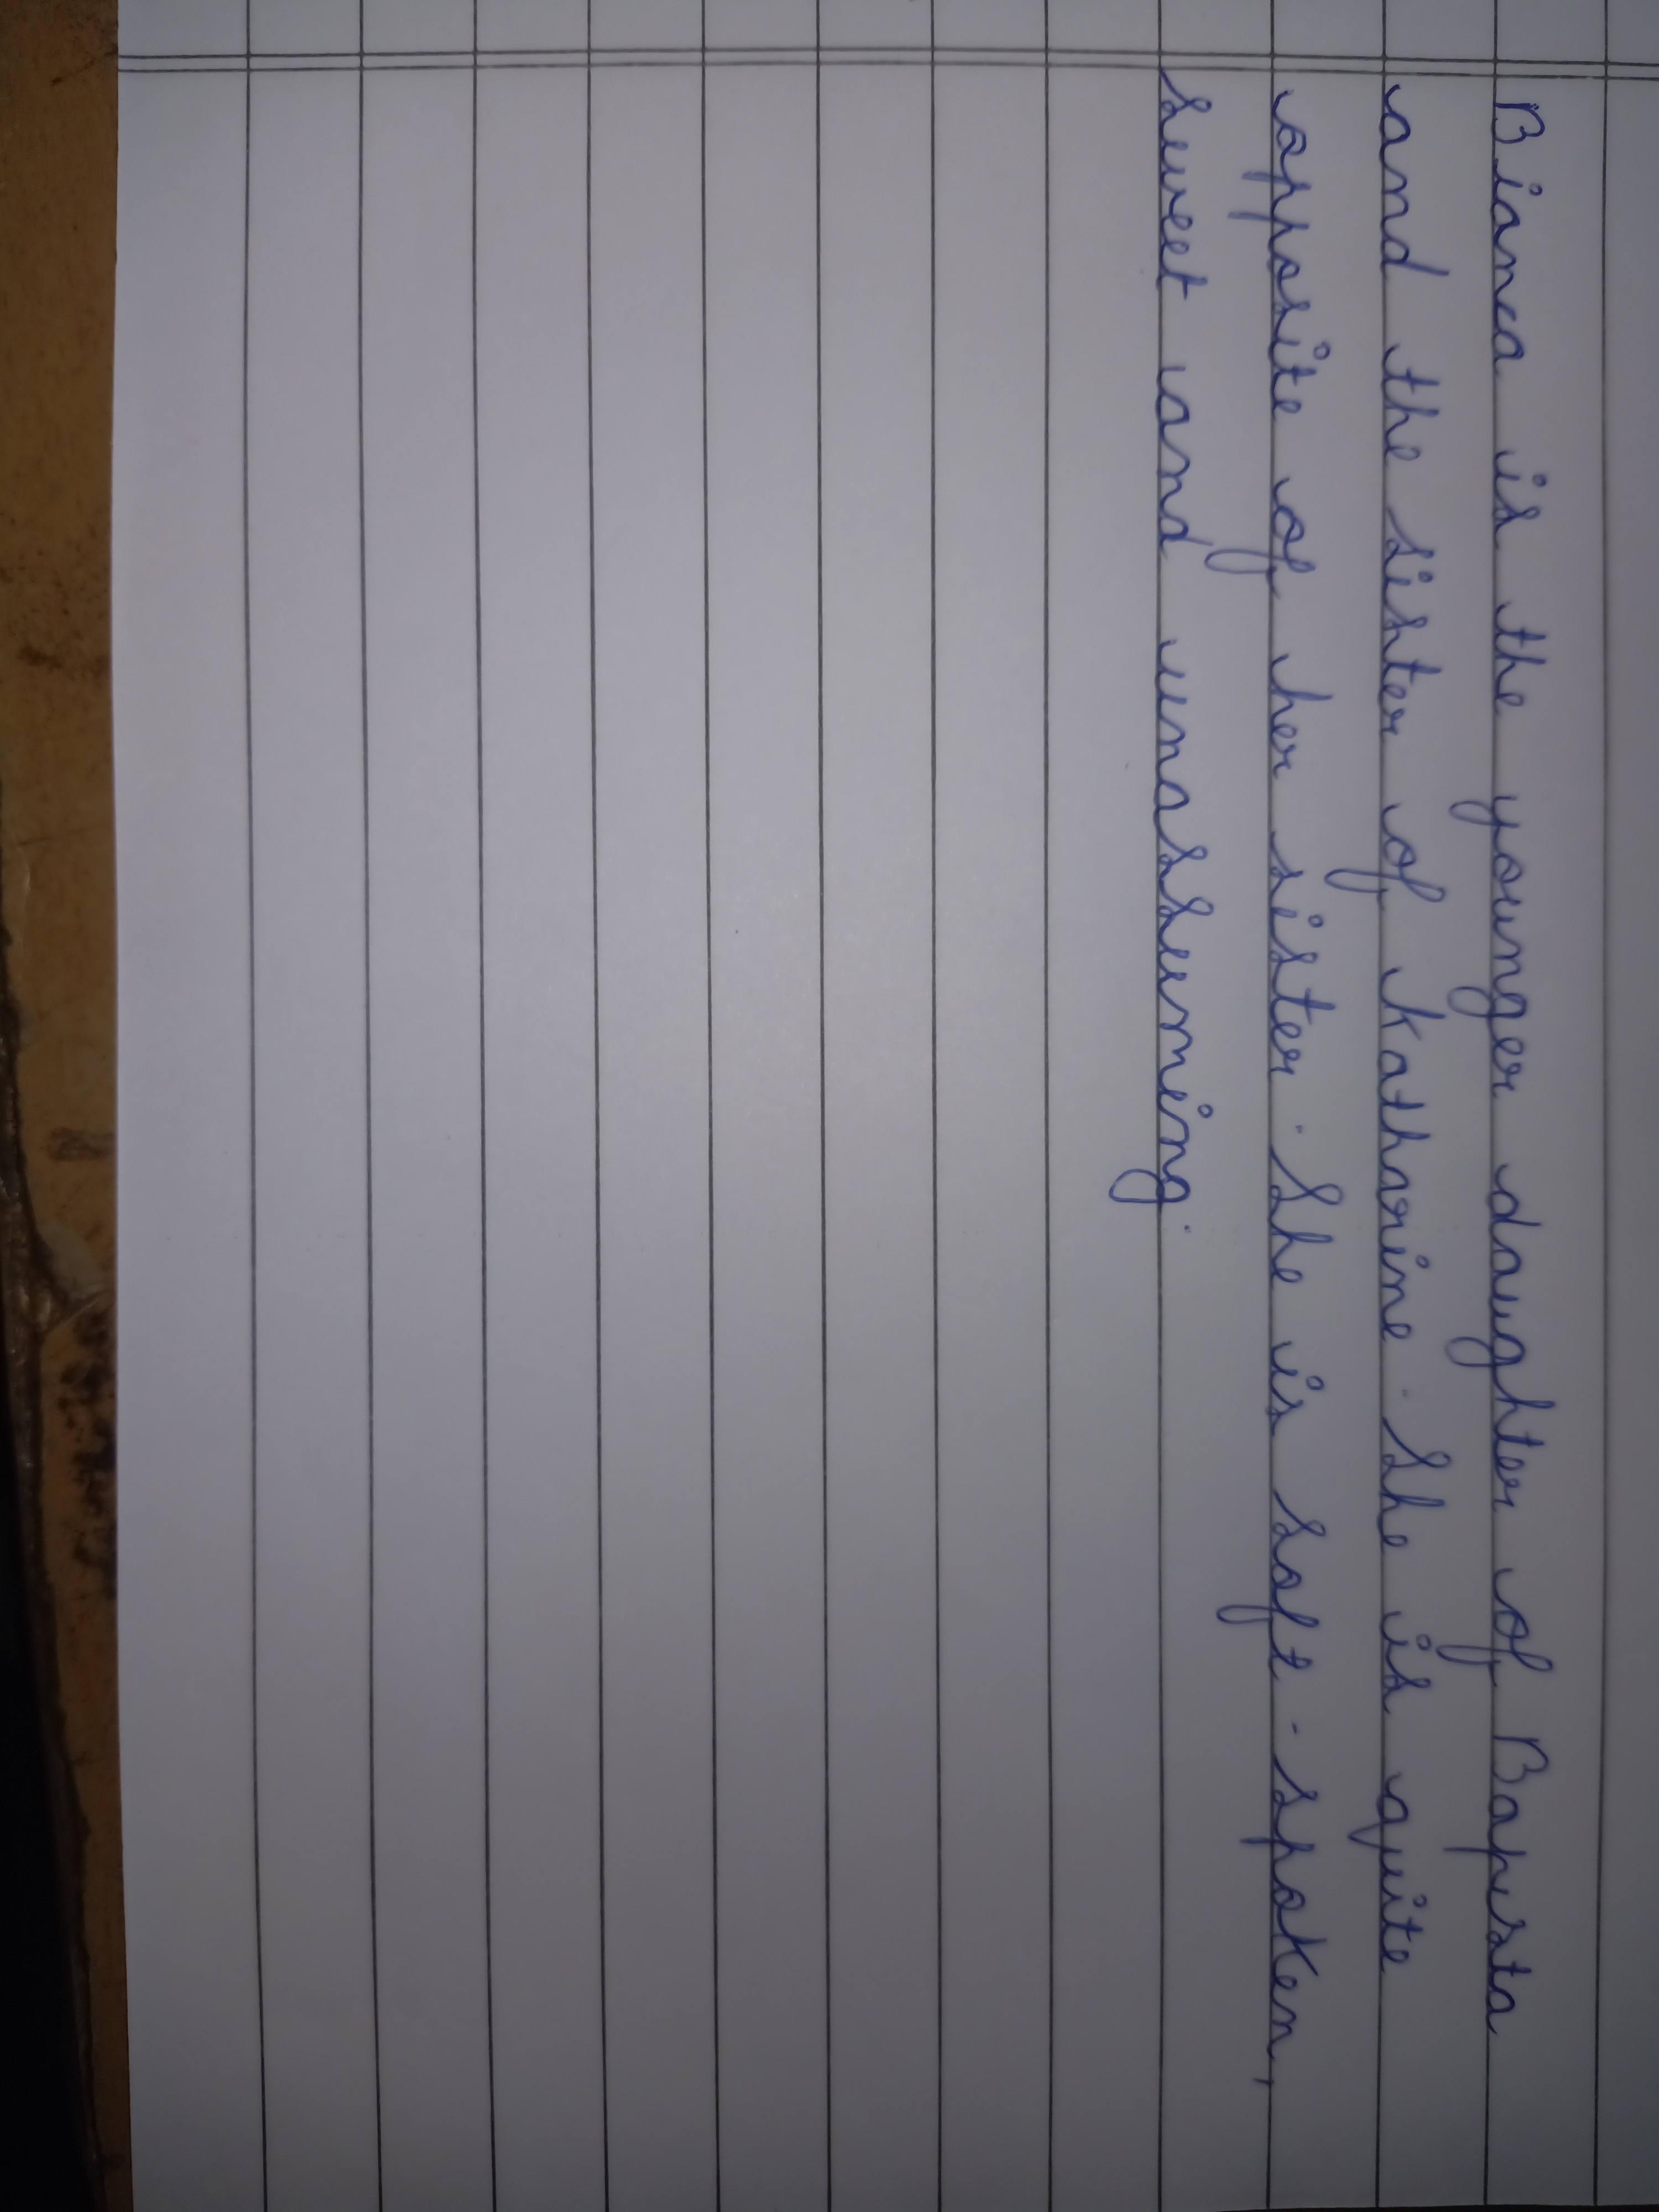 Bianca is the younger daughter of Bapista
and the sister of Kathrine. She is quite
opposite of her sister. She is soft-spoken,
sweet and unassuming.